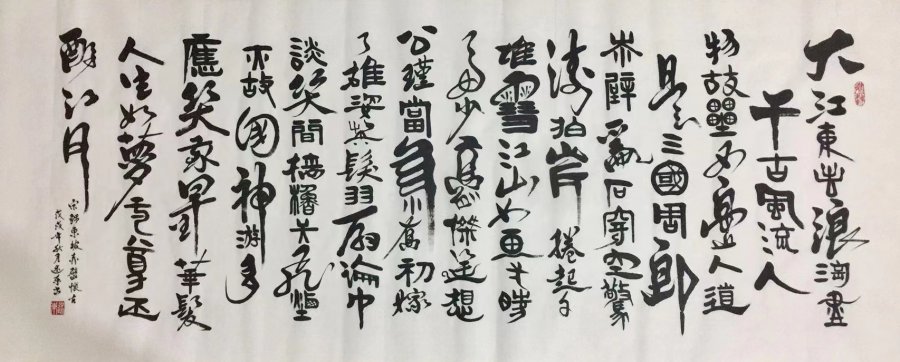 大江東去浪淘盡
千古風流人
物故壘西邊人道
是三國周郎
赤壁亂石穿空驚
濤拍岸捲起千
堆雪江山如画一時
多少豪傑遙想
公瑾當年小喬初嫁
了雄姿英髮羽扇綸巾
談笑間檣櫓灰飛煙
灭故國神游多情
應笑我早生華髮
人生如夢一尊还
酹江月
宋蘇東坡赤壁懷古
戊戌年秋月